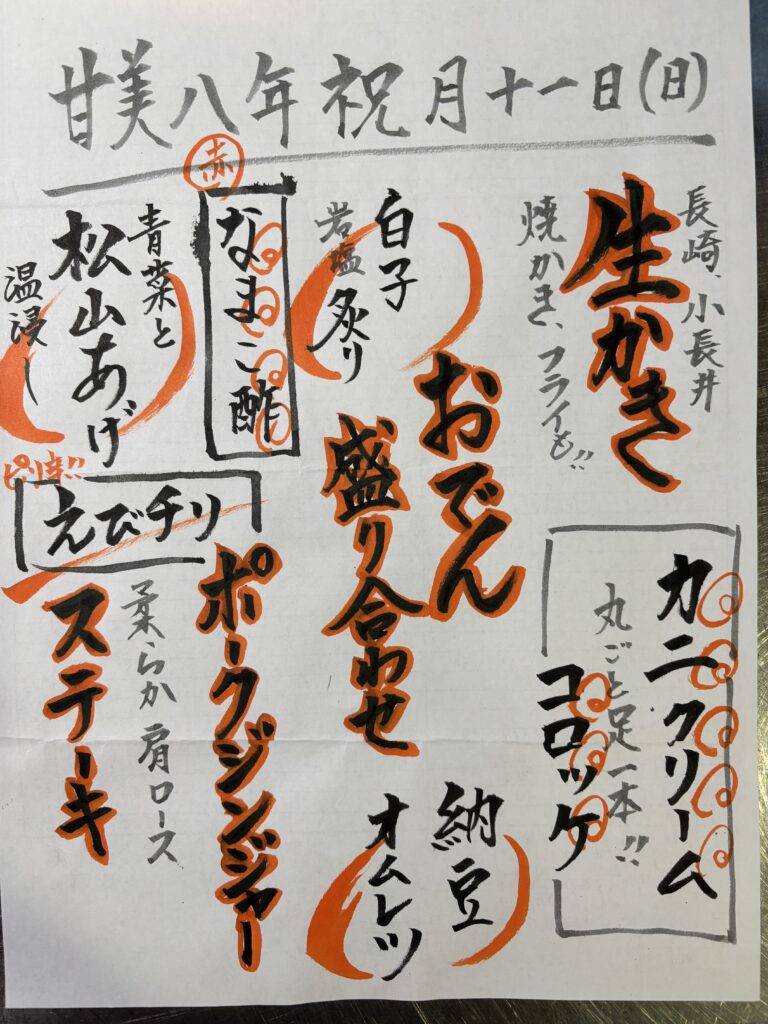 甘美八年 祝月十一日(日)
長崎、小長井
生かき
焼かき、フライも!!
カニクリーム
丸ごと足一本!!
コロッケ
白子
岩塩炙り
おでん
盛り合わせ
納豆
オムレツ
赤
なまこ酢
青菜と
松山あげ
温浸し
ピリ辛!!
えびチリ
ポークジンジャー
柔らか肩ロース
ステーキ